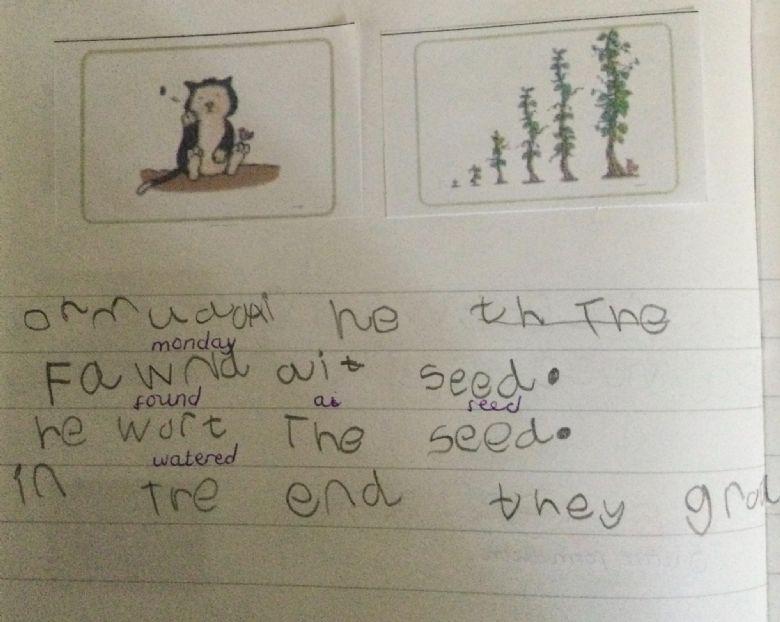 he th The
monday
Fawnd ait seed.
found a seed
he wort The seed.
watered
in Tre end they